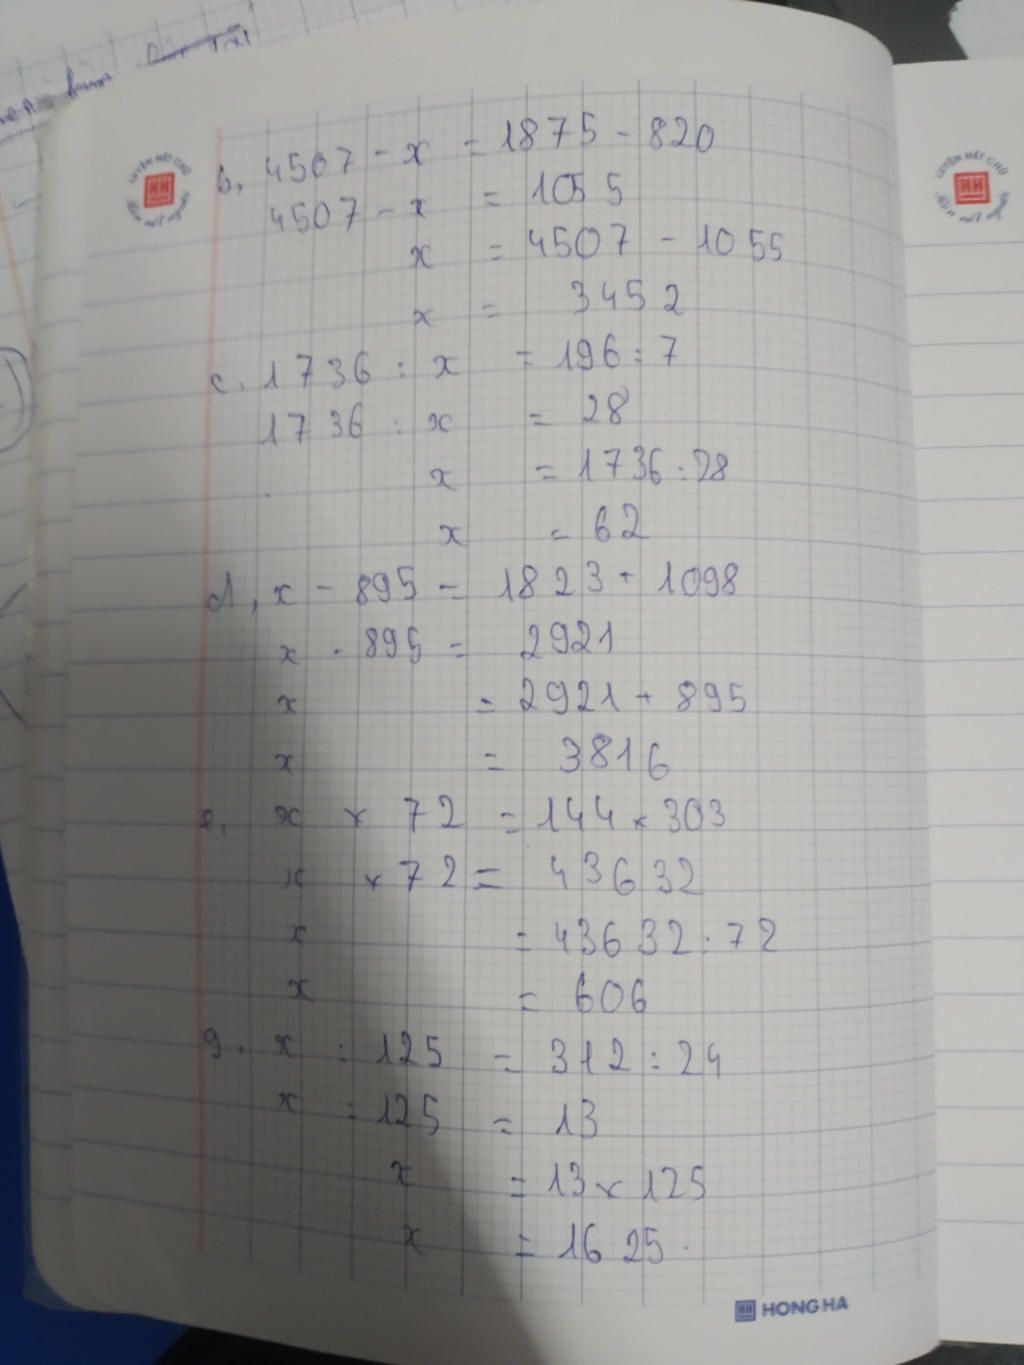 b, 4507 - x = 1875 - 820
4507 - x = 1055
x = 4507 - 1055
x = 3452
c. 1736 : x = 196 : 7
1736 : x = 28
x = 1736 : 28
x = 62
d, x - 895 = 1823 + 1098
x - 895 = 2921
x = 2921 + 895
x = 3816
e, x × 72 = 144 × 303
x × 72 = 43632
x = 43632 : 72
x = 606
g. x : 125 = 312 : 24
x : 125 = 13
x = 13 × 125
x = 1625.
HONG HA
LUYỆN NÉT CHỮ
LUYỆN NÉT CHỮ